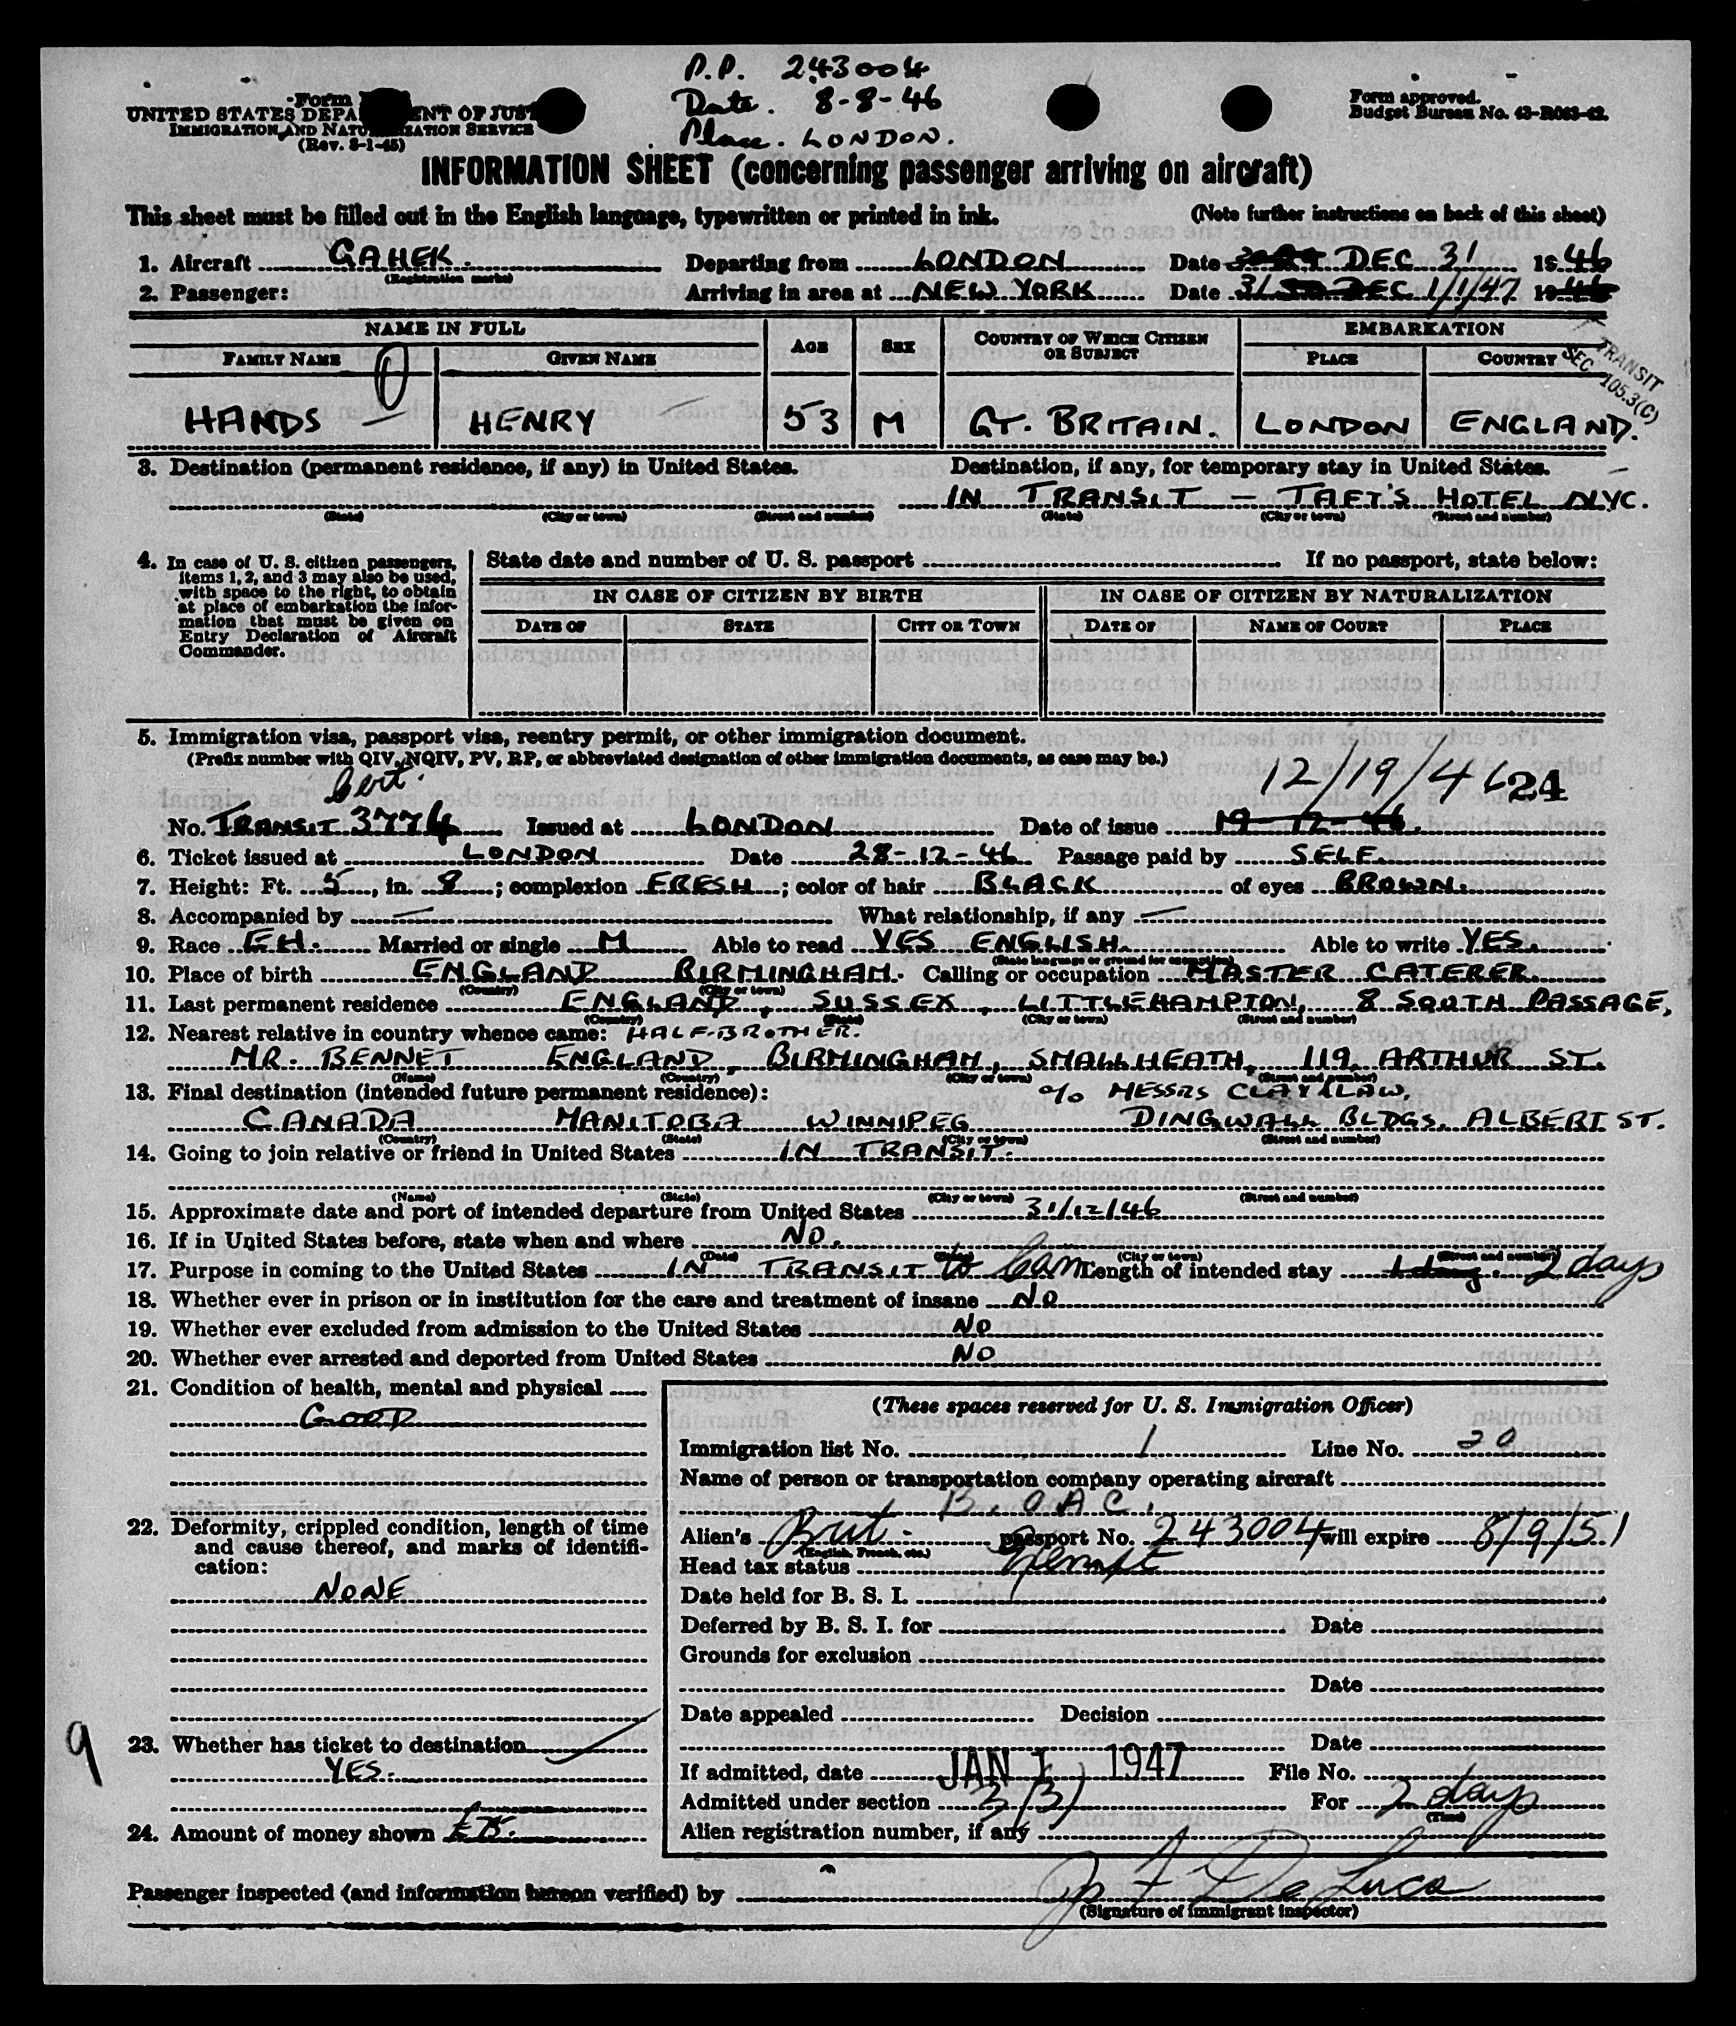 P.P. 243004
Date. 8-8-46
Place. LONDON.
Form
UNITED STATES DEPA ENT OF JUST
IMMIGRATION AND NATU ZATION SERVICE
(Rev. 8-1-45)
Form approved.
Budget Bureau No. 43-R083-42.
INFORMATION SHEET (concerning passenger arriving on aircraft)
This sheet must be filled out in the English language, typewritten or printed in ink. (Note further instructions on back of this sheet)
1. Aircraft GAHEK. Departing from LONDON Date DEC 31 1946
(Registration marks)
2. Passenger: Arriving in area at NEW YORK Date 31 DEC 1/1/47 1946
NAME IN FULL AGE SEX COUNTRY OF WHICH CITIZEN OR SUBJECT EMBARKATION
FAMILY NAME GIVEN NAME PLACE COUNTRY
TRANSIT
SEC. 105.3(C)
HANDS HENRY 53 M GT. BRITAIN. LONDON ENGLAND.
3. Destination (permanent residence, if any) in United States. Destination, if any, for temporary stay in United States.
IN TRANSIT — TAFT'S HOTEL NYC.
(State) (City or town) (Street and number) (State) (City or town) (Street and number)
4. In case of U. S. citizen passengers, items 1, 2, and 3 may also be used, with space to the right, to obtain at place of embarkation the information that must be given on Entry Declaration of Aircraft Commander.
State date and number of U. S. passport If no passport, state below:
IN CASE OF CITIZEN BY BIRTH IN CASE OF CITIZEN BY NATURALIZATION
DATE OF STATE CITY OR TOWN DATE OF NAME OF COURT PLACE
5. Immigration visa, passport visa, reentry permit, or other immigration document.
(Prefix number with QIV, NQIV, PV, RP, or abbreviated designation of other immigration documents, as case may be.)
Cert. 12/19/46 24
No. TRANSIT 3774 Issued at LONDON Date of issue 19-12-46.
6. Ticket issued at LONDON Date 28-12-46 Passage paid by SELF.
7. Height: Ft. 5, in. 8; complexion FRESH; color of hair BLACK of eyes BROWN.
8. Accompanied by — What relationship, if any —
9. Race EH. Married or single M Able to read YES ENGLISH. Able to write YES.
(State language or ground for exemption)
10. Place of birth ENGLAND BIRMINGHAM. Calling or occupation MASTER CATERER.
(Country) (City or town)
11. Last permanent residence ENGLAND, SUSSEX, LITTLEHAMPTON, 8 SOUTH PASSAGE,
(Country) (State) (City or town) (Street and number)
12. Nearest relative in country whence came: HALF-BROTHER.
MR. BENNET ENGLAND, BIRMINGHAM, SMALLHEATH, 119, ARTHUR ST.
(Name) (Country) (City or town) (Street and number)
13. Final destination (intended future permanent residence): c/o MESSRS CLAY & LAW.
CANADA MANITOBA WINNIPEG DINGWALL BLDGS. ALBERT ST.
(Country) (State) (City or town) (Street and number)
14. Going to join relative or friend in United States IN TRANSIT.
(Name) (State) (City or town) (Street and number)
15. Approximate date and port of intended departure from United States 31/12/46
16. If in United States before, state when and where NO.
(Date) (State) (City or town) (Street and number)
17. Purpose in coming to the United States IN TRANSIT to Can Length of intended stay 1 day. 2 days
18. Whether ever in prison or in institution for the care and treatment of insane NO
19. Whether ever excluded from admission to the United States NO
20. Whether ever arrested and deported from United States NO
21. Condition of health, mental and physical
GOOD
22. Deformity, crippled condition, length of time and cause thereof, and marks of identification:
NONE
9
23. Whether has ticket to destination
YES.
24. Amount of money shown £75.
(These spaces reserved for U. S. Immigration Officer)
Immigration list No. 1 Line No. 20
Name of person or transportation company operating aircraft
B.O.A.C.
Alien's Brit. passport No. 243004 will expire 8/9/51
(English, French, etc.)
Head tax status Exempt
Date held for B. S. I.
Deferred by B. S. I. for Date
Grounds for exclusion
Date
Date appealed Decision
Date
If admitted, date JAN 1 1947 File No.
Admitted under section 3(3) For 2 days
(Time)
Alien registration number, if any
Passenger inspected (and information hereon verified) by De Luca
(Signature of immigrant inspector)